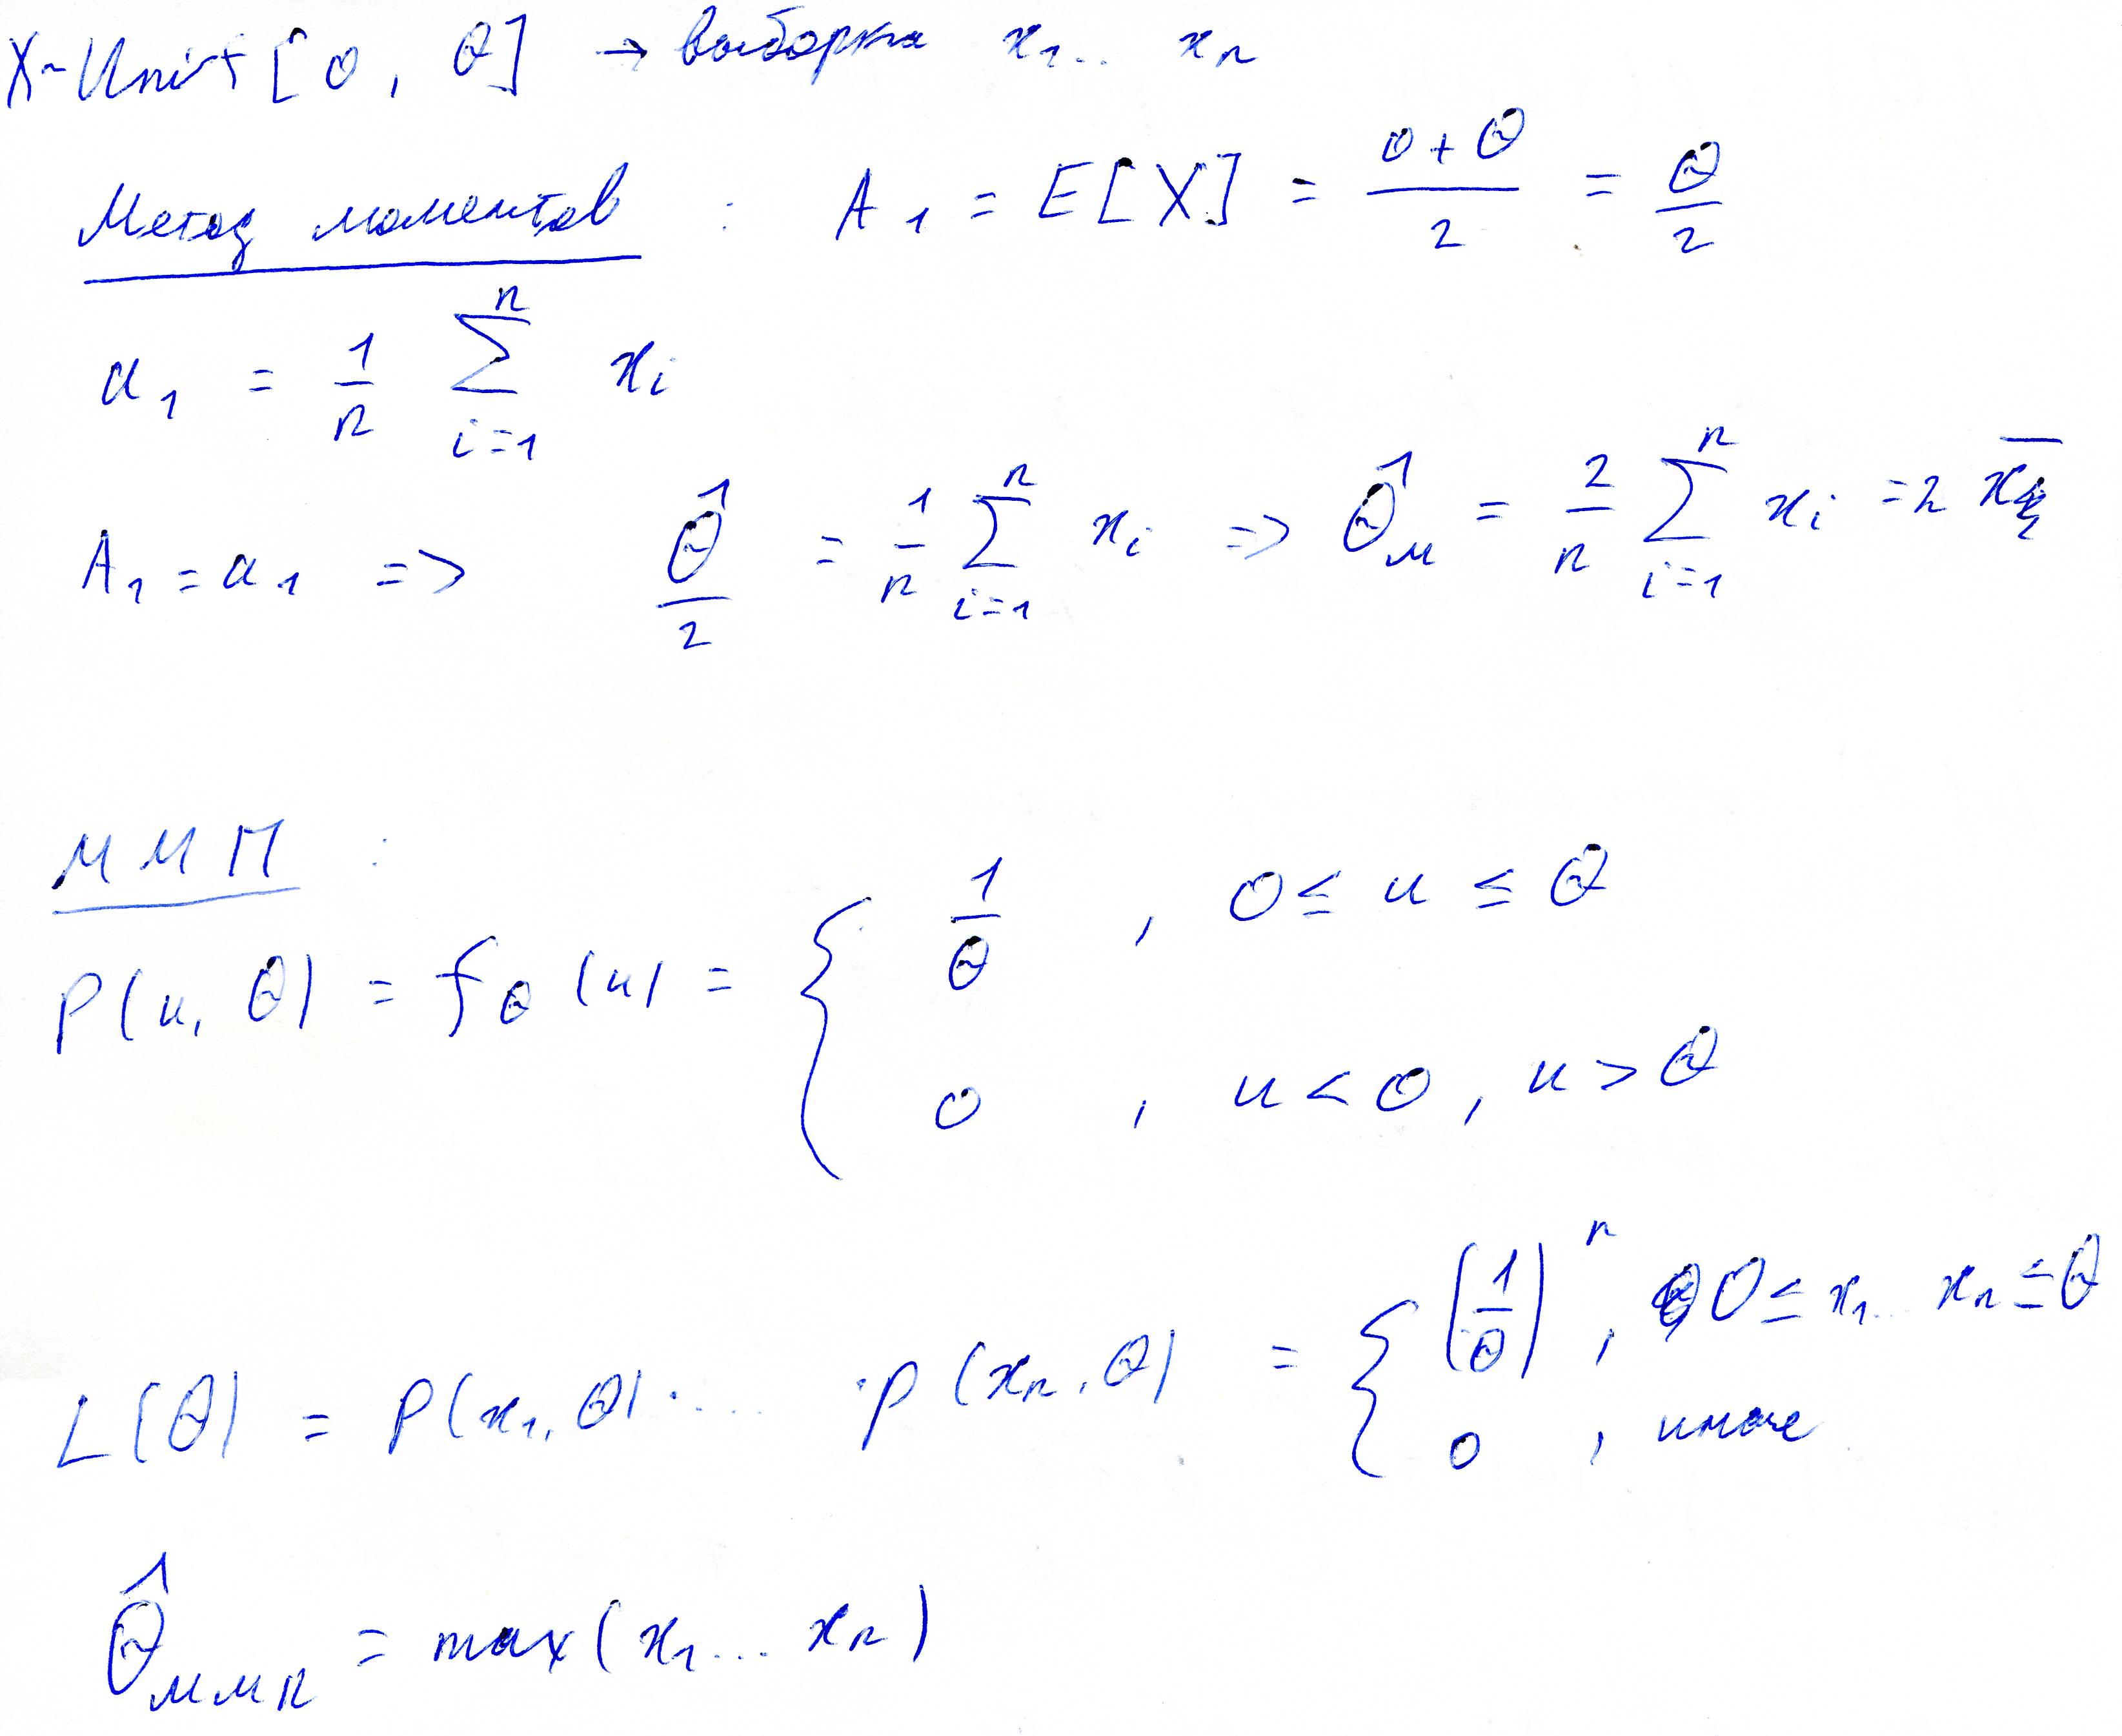 X~Unif [0, θ] → выборка x₁... xₙ
Метод моментов : A₁ = E[X] = (0+θ)/2 = θ/2
a₁ = 1/n ∑ᵢ₌₁ⁿ xᵢ
A₁ = a₁ => θ̂/2 = 1/n ∑ᵢ₌₁ⁿ xᵢ => θ̂м = 2/n ∑ᵢ₌₁ⁿ xᵢ = 2 x̅
ММП :
P(u, θ) = f_θ(u) = { 1/θ , 0 ≤ u ≤ θ
0 , u < 0, u > θ
L(θ) = P(x₁, θ) · ... · P(xₙ, θ) = { (1/θ)ⁿ , 0 ≤ x₁... xₙ ≤ θ
0 , иначе
θ̂ммп = max(x₁... xₙ)